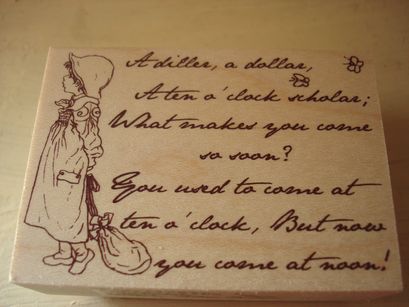 A diller, a dollar,
A ten o'clock scholar;
What makes you come
so soon?
You used to come at
ten o'clock, But now
you come at noon!